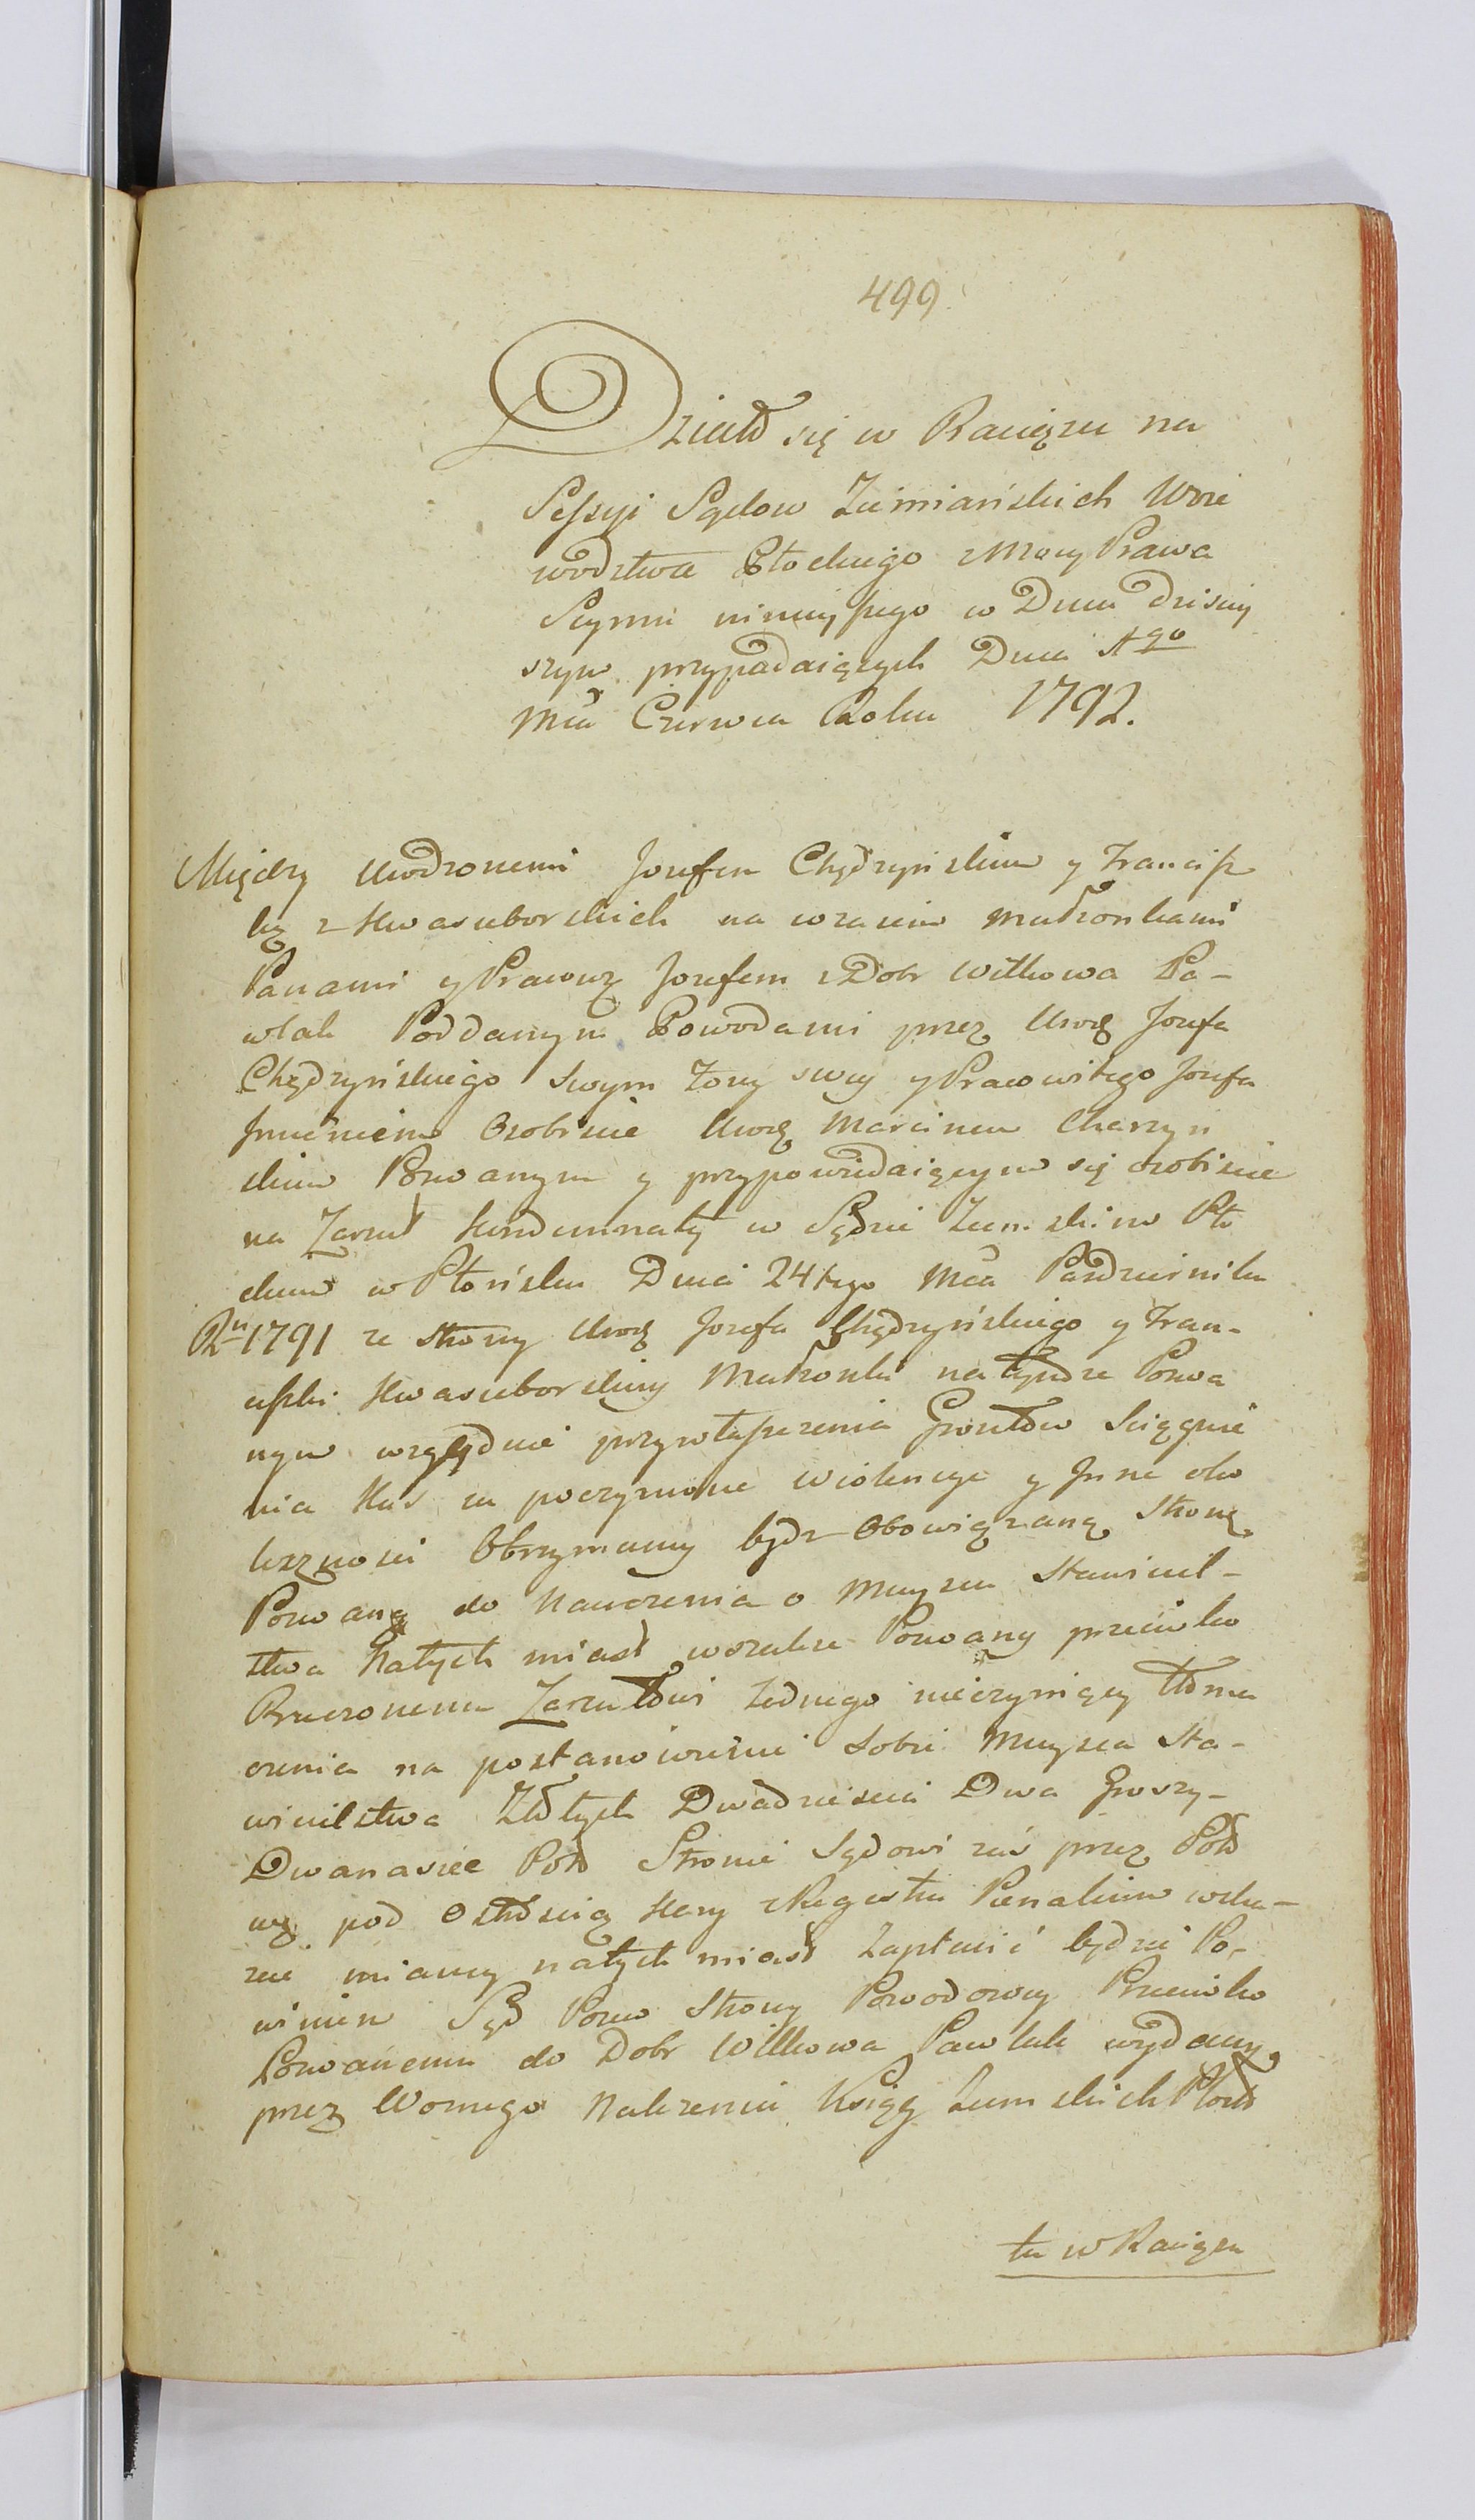 499
Działo się w Raciążu na
Sessyi Sądow Ziemiańskich Woie
wodztwa Płockiego z Mocy Prawa
Seymu ninieyszego w Dniu dzisiey
szym przypadaiących Dnia 4go
Mca Czerwca Roku 1792.
Między Urodzonemi Jozefem Chądzyńskim y Francisz
ką z Kwasieborskich na wzaiem małzonkami
Panami y Pracową Jozefem z Dobr Witkowa Pa-
wlak Poddanym Powodami przez Urodz Jozefa
Chądzyńskiego swym Zony swey y Pracowitego Jozefa
Jmieniem Osobiscie Urodz Marcinem Charzyn
skim Pozwanym y przypowiedaiącym się osobiscie
na Zarzut kondemnaty w Sądzie Ziemskim Pło
ckim w Płońsku Dnia 24tego Mca Pazdziernika
Ru 1791 ze strony Urodz Jozefa Chądzyńskiego y Fran-
ciszki Kwasieborskiey Małzonki na tymze Pozwa
nym względnie przywłaszczenia Gruntow Sciągnie
nia Kar za poczynione wiolencye y Jnne oko
liczności Otrzymaney bydz Obowiązaną Stronę
Pozwaną do Nawrzenia o Mieysce Stawiciel-
stwa Natych miast wszakze Pozwany przeciwko
Rzeczonemu Zarzutowi zednego nieczyniący tłoma
czenia na postanowienie sobie Mieysca Sta-
wicielstwa Złotych Dwadziescia Dwa Groszy-
Dwanascie Poło Stronie Sądowi zas przez Poło
wę pod Ostroscią Kary z Regestru Poenalium wska-
zac mianey natych miast Zapłacić będzie Po-
winien Sąd Pozew Strony Powodowey Przeciwko
Pozwanemu do Dobr Witkowa Pawlak wydany
przez Woznego Nalezenie Xiąg Ziemskich Płock
tu w Raciązu